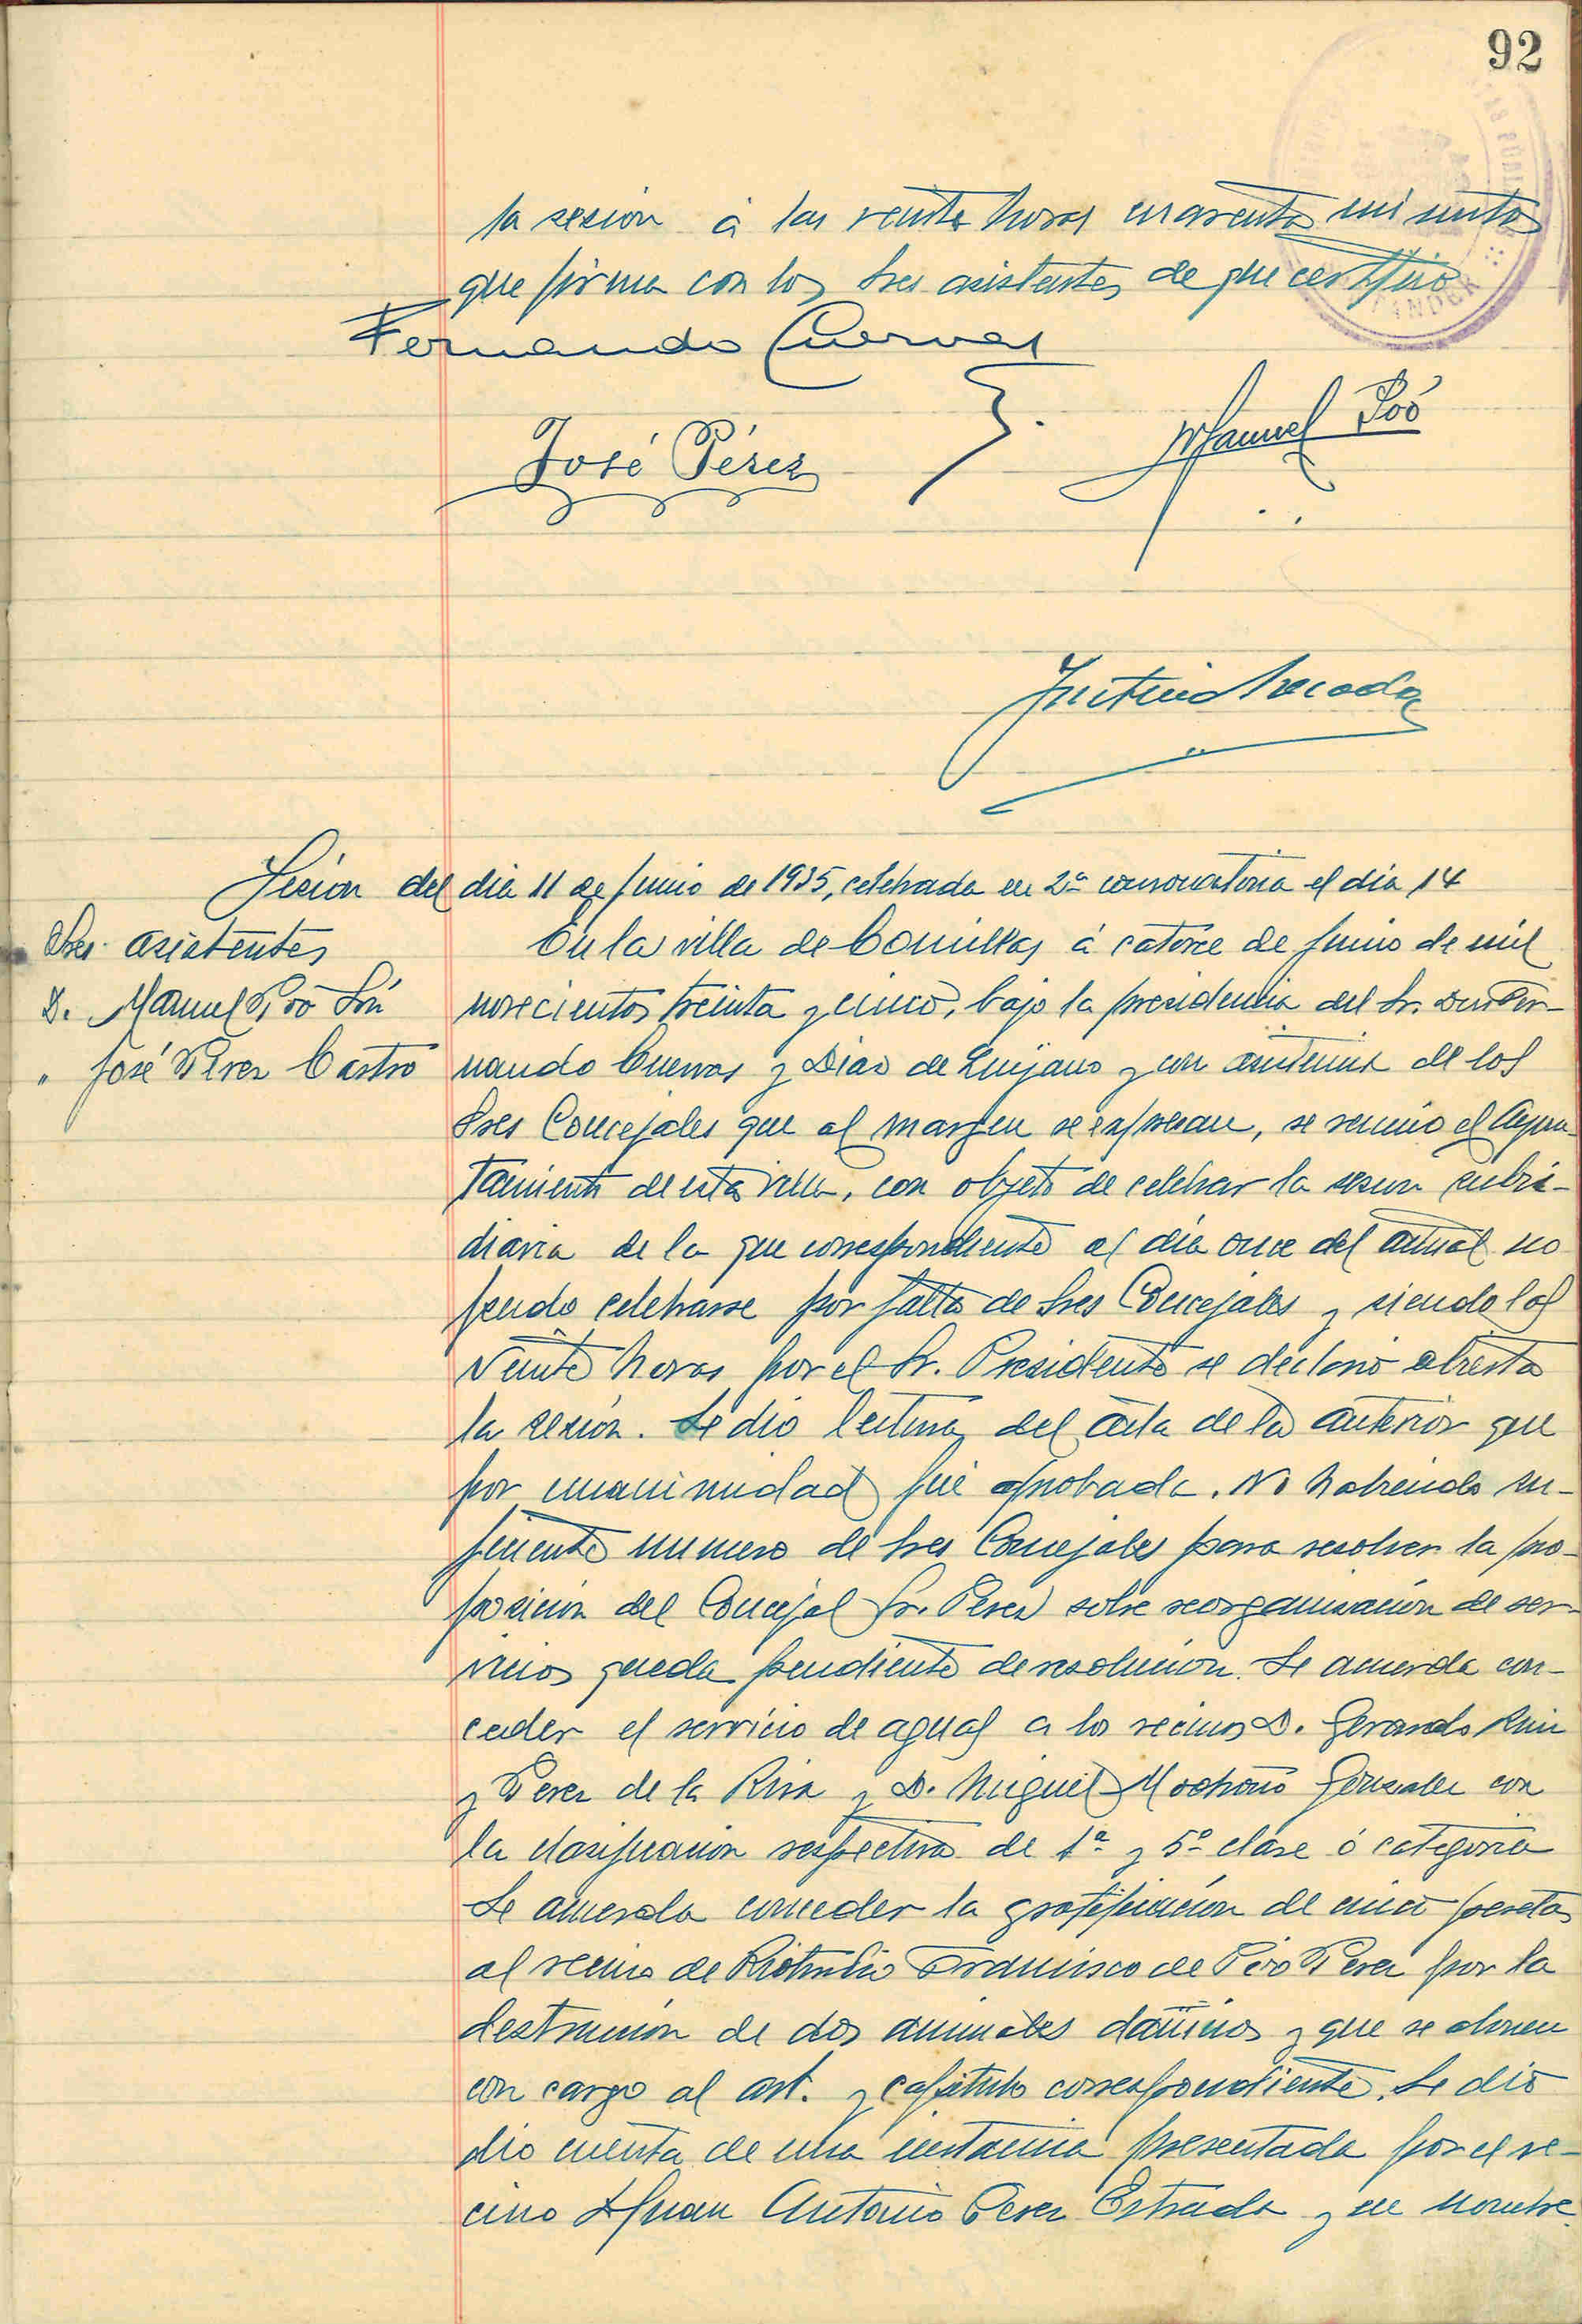 92
la sesión á las veinte horas cuarenta minutos
que firma con los Sres asistentes de que certifico
Fernando Cuevas
José Pérez
Manuel Poó
Sesion del dia 11 de Junio de 1935, celebrada en 2ª convocatoria el día 14
Sres. asistentes
D. Manuel Poó
" José Perez Castro
En la villa de Comillas á catorce de Junio de mil
novecientos treinta y cinco, bajo la presidencia del Sr. Don Fer-
nando Cuevas y Diaz de Quijano y con asistencia de los
Sres Concejales que al margen se expresan, se reunió el Ayun-
tamiento de esta villa, con objeto de celebrar la sesion subsi-
diaria de la que correspondiente al día once del actual no
pudo celebrarse por falta de Sres Concejales y siendo las
veinte horas por el Sr. Presidente se declaró abierta
la sesión. Se dio lectura del acta de la anterior que
por unanimidad fué aprobada. No habiendo su-
ficiente numero de Sres Concejales para resolver la pro-
posicion del Concejal Sr. Perez sobre reorganización de ser-
vicios queda pendiente de resolucion. Se acuerda con-
ceder el servicio de aguas a los vecinos D. Gerardo Ruiz
y Perez de la Riva y D. Miguel Mochono Gonzalez con
la clasificacion respectiva de 1ª y 5ª clase ó categoria
Se acuerda conceder la gratificación de cinco pesetas
al vecino de Rioturbio Francisco de Pio Perez por la
destrucción de dos animales dañinos y que se abonen
con cargo al art. y capitulo correspondiente. Se dió
dio cuenta de una instancia presentada por el ve-
cino D Juan Antonio Perez Estrada y en nombre